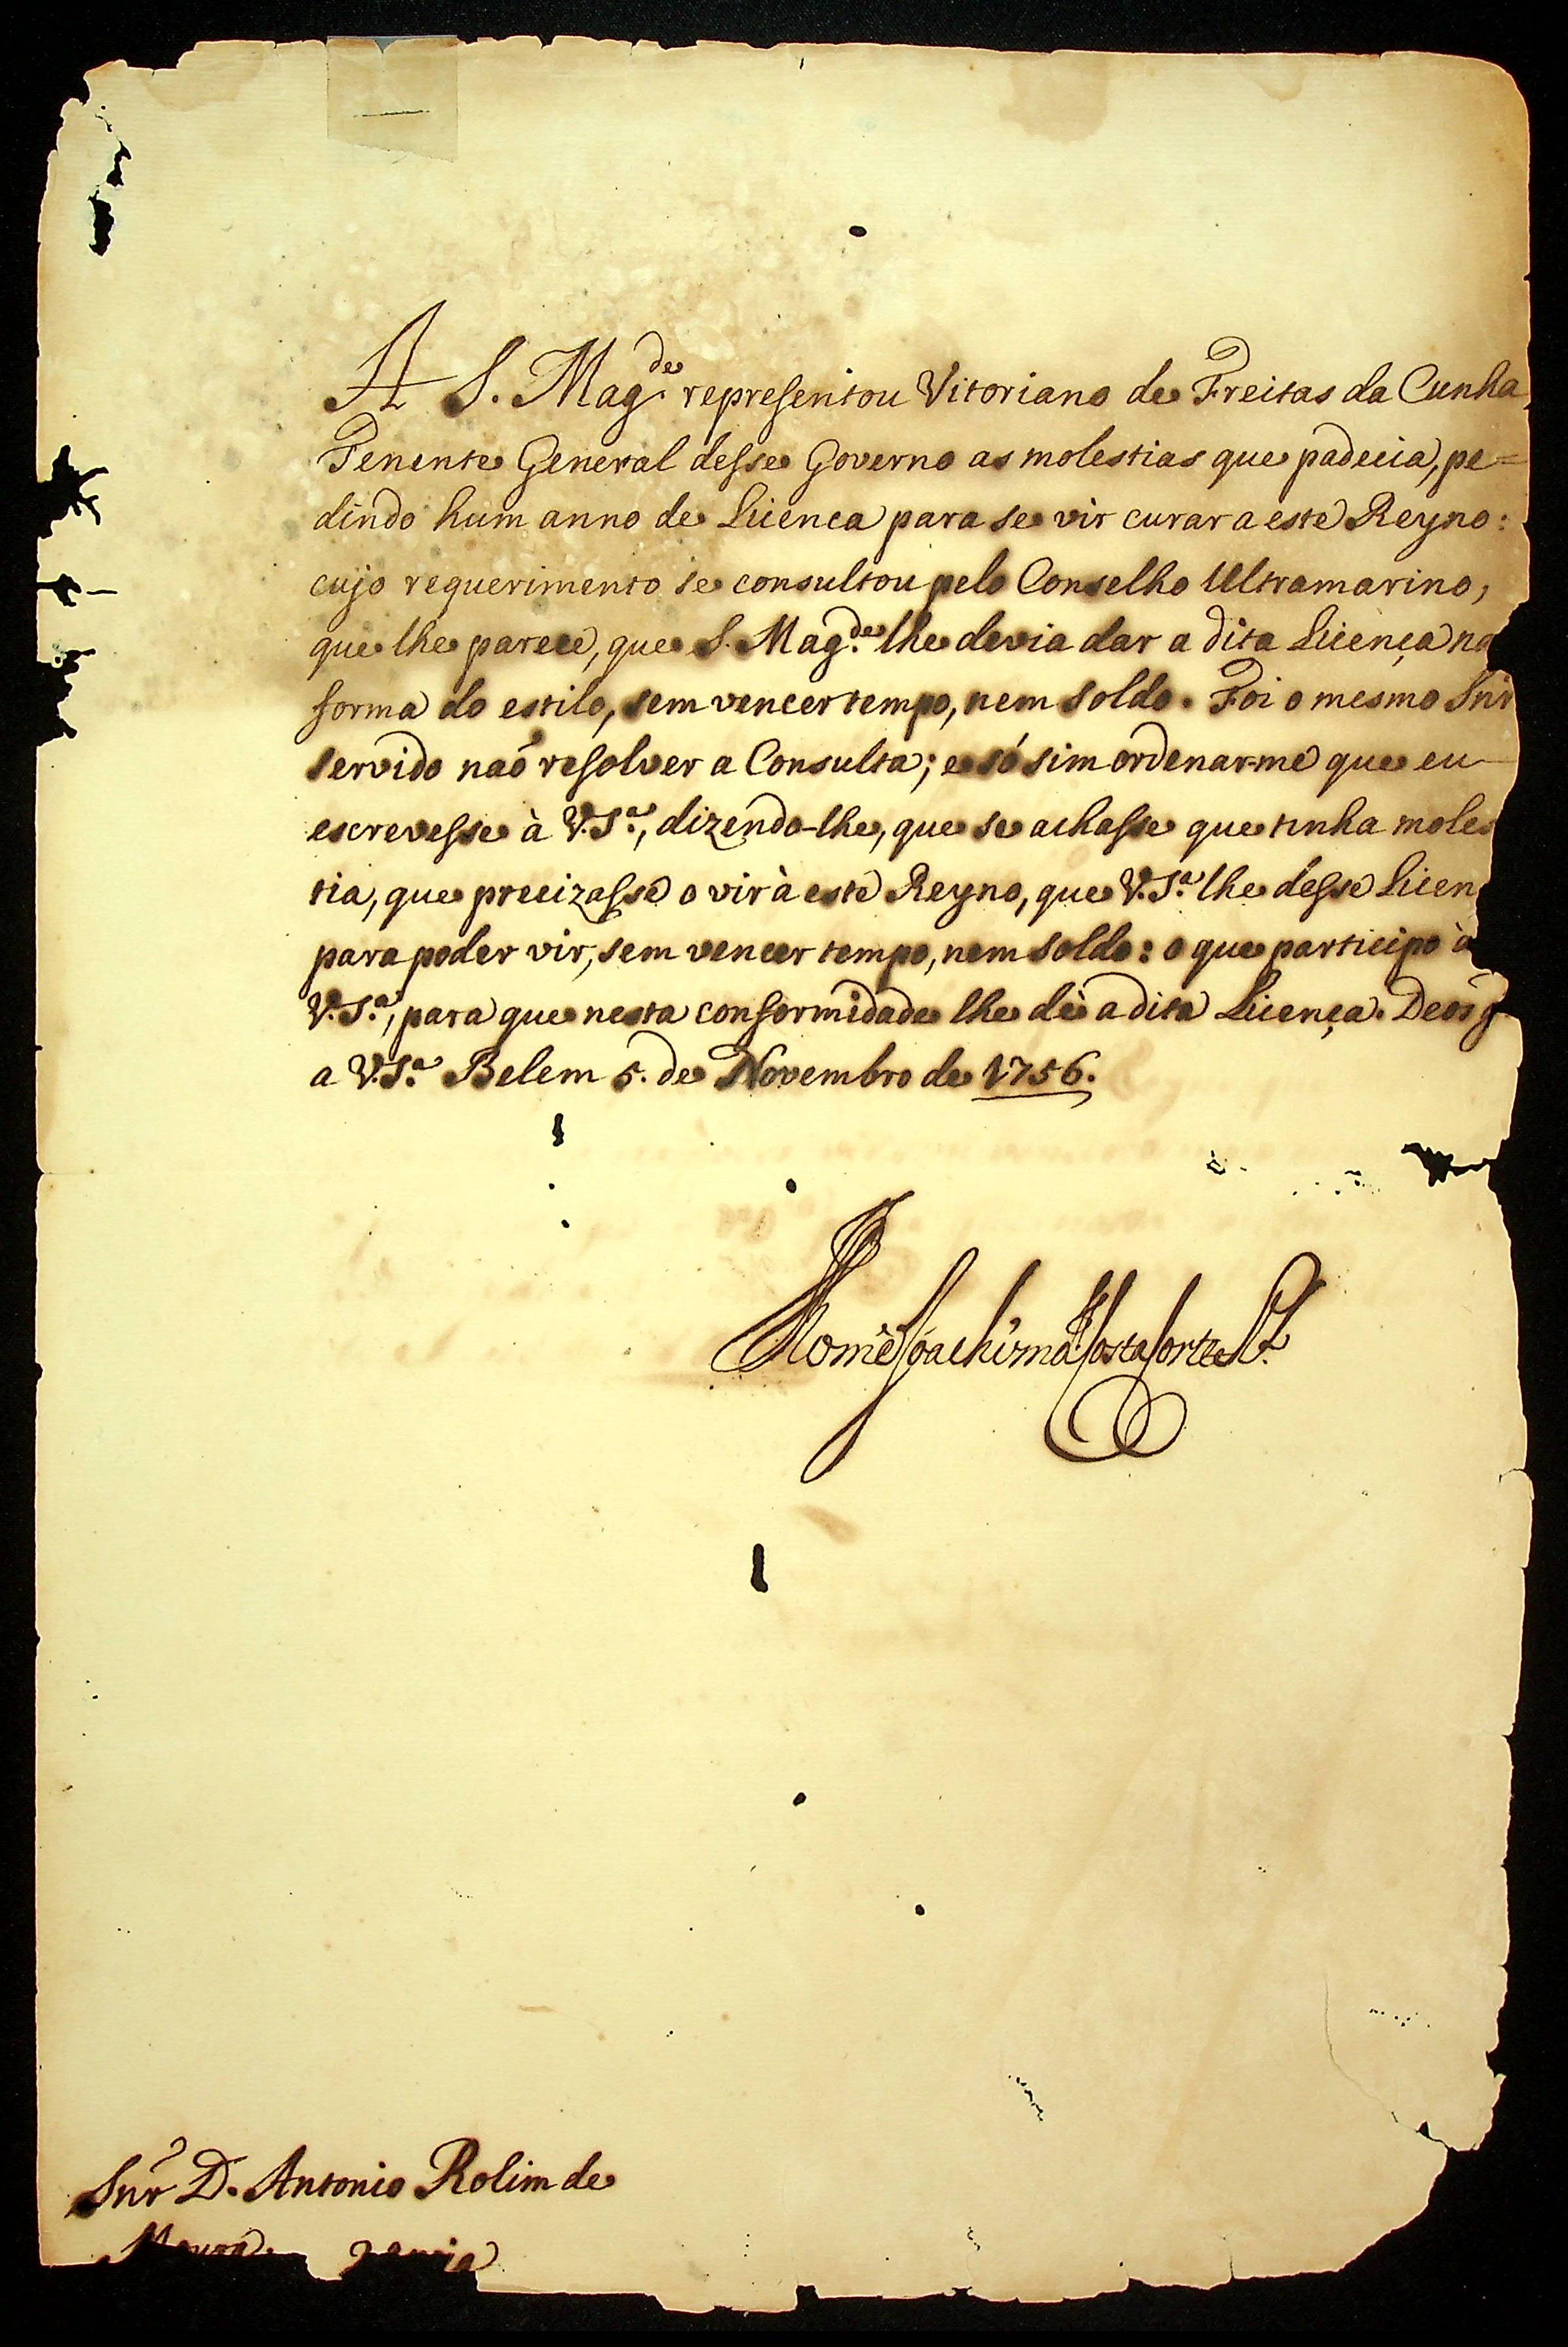 A S. Mag.de representou Vitoriano de Freitas da Cunha
Tenente General desse Governo as molestias que padecia, pe=
dindo hum anno de Licenca para se vir curar a este Reyno:
cujo requerimento se consultou pelo Conselho Ultramarino,
que lhe parece, que S. Mag.de lhe devia dar a dita Licença na
forma do estilo, sem vencer tempo, nem soldo. Foi o mesmo Snr
servido naõ resolver a Consulta; e só sim ordenar-me que eu
escrevesse à V.S.a, dizendo-lhe, que se achasse que tinha moles
tia, que precizasse o vir à este Reyno, que V.S.a lhe desse Licen
para poder vir, sem vencer tempo, nem soldo: o que participo à
V.S.a, para que nesta conformidade lhe dè a dita Licença. Deos g
a V.S.a Belem 5. de Novembro de 1756.
Thomè Joachim da Costa Corte Rl.
Snr D. Antonio Rolim de
Moura.